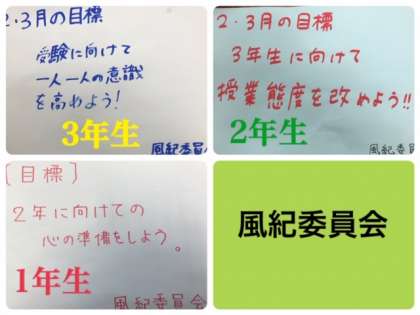 2・3月の目標
受験に向けて
一人一人の意識
を高めよう!
3年生
風紀委員
2・3月の目標
3年生に向けて
授業態度を改めよう!!
2年生
風紀委員会
[目標]
2年に向けての
心の準備をしよう。
1年生
風紀委員会
風紀委員会